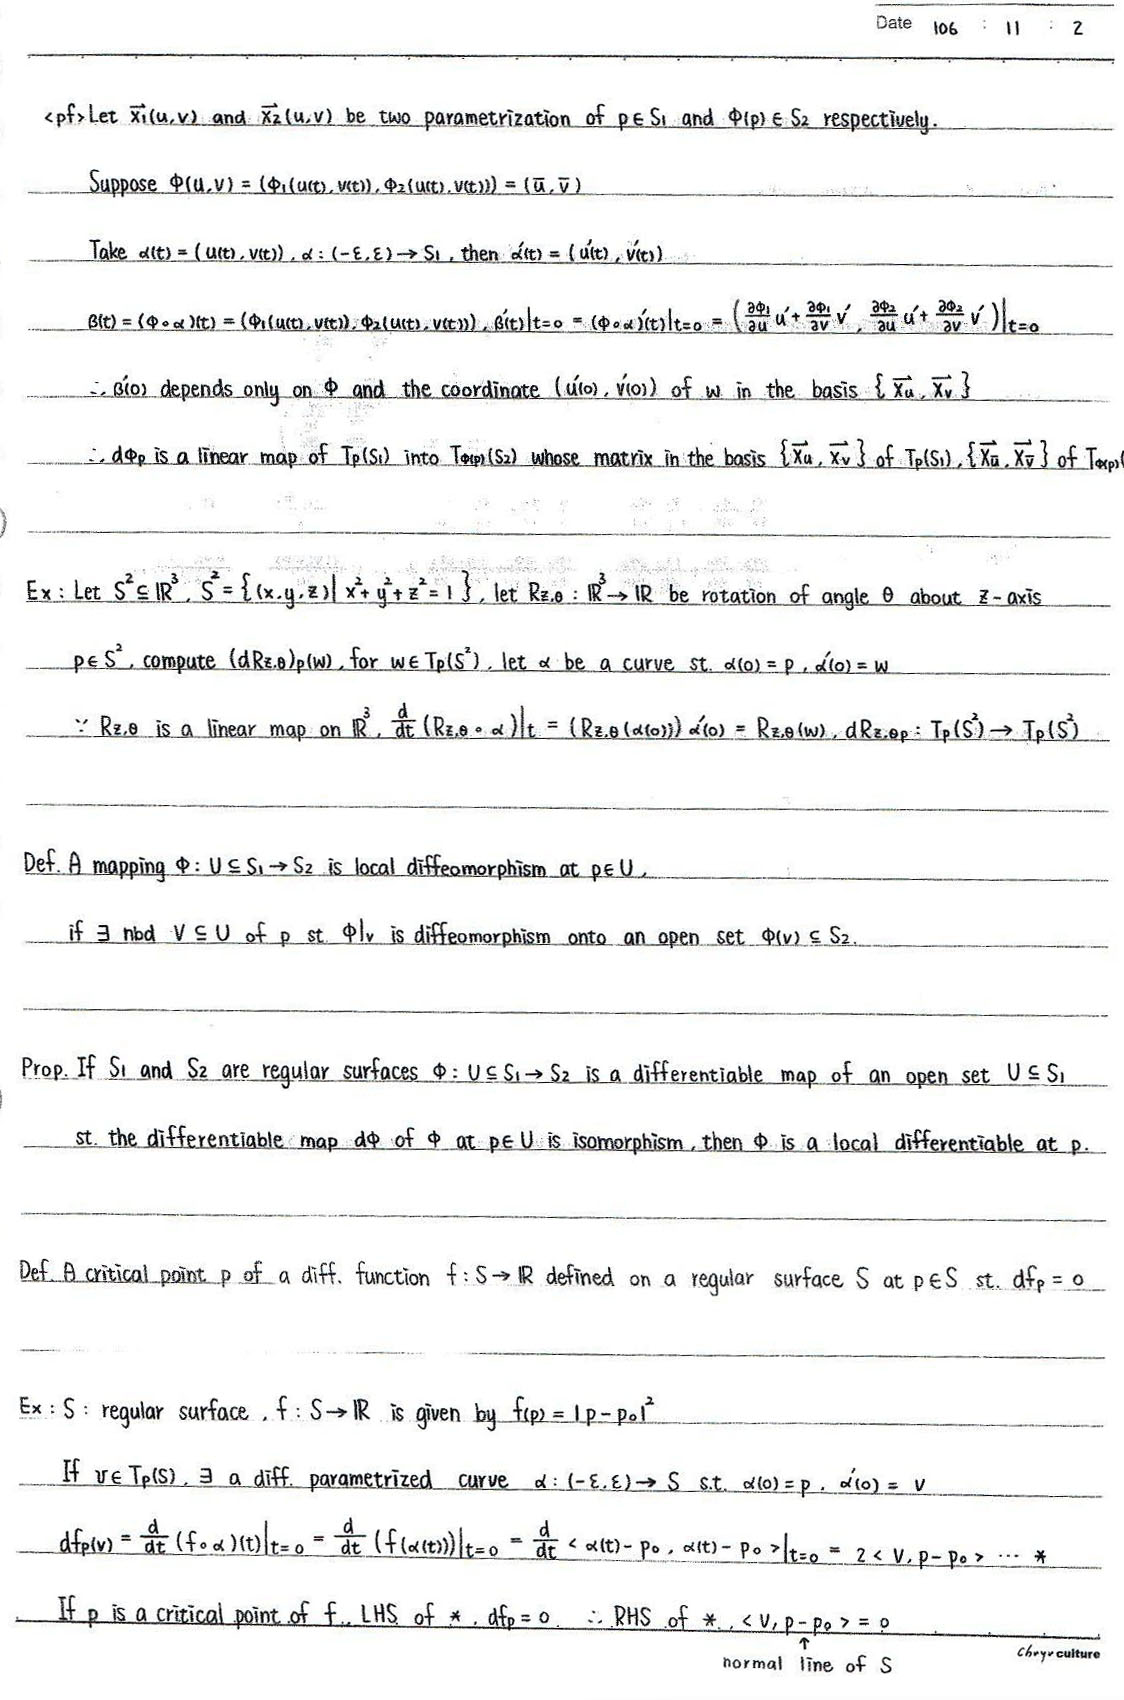 Date 106 : 11 : 2
<pf> Let x⃗₁(u,v) and x⃗₂(u,v) be two parametrization of p∈S₁ and Φ(p)∈S₂ respectively.
Suppose Φ(u,v) = (Φ₁(u(t),v(t)), Φ₂(u(t),v(t))) = (ū, v̄)
Take α(t) = (u(t), v(t)), α : (-ε, ε) → S₁, then α′(t) = (u′(t), v′(t))
β(t) = (Φ∘α)(t) = (Φ₁(u(t),v(t)), Φ₂(u(t),v(t))), β′(t)|t=0 = (Φ∘α)′(t)|t=0 = (∂Φ₁/∂u u′ + ∂Φ₁/∂v v′, ∂Φ₂/∂u u′ + ∂Φ₂/∂v v′)|t=0
∴ β′(0) depends only on Φ and the coordinate (u′(0), v′(0)) of w in the basis {x⃗u, x⃗v}
∴ dΦp is a linear map of Tp(S₁) into TΦ(p)(S₂) whose matrix in the basis {x⃗u, x⃗v} of Tp(S₁), {x⃗ū, x⃗v̄} of TΦ(p)(
Ex : Let S² ⊆ ℝ³, S² = {(x,y,z)| x²+y²+z²=1}, let Rz,θ : ℝ³→ℝ be rotation of angle θ about z-axis
p∈S², compute (dRz,θ)p(w), for w∈Tp(S²), let α be a curve st. α(0) = p, α′(0) = w
∵ Rz,θ is a linear map on ℝ³, d/dt (Rz,θ∘α)|t = (Rz,θ(α(0))) α′(0) = Rz,θ(w), dRz,θp : Tp(S²) → Tp(S²)
Def. A mapping Φ : U⊆S₁→S₂ is local diffeomorphism at p∈U,
if ∃ nbd V⊆U of p st. Φ|v is diffeomorphism onto an open set Φ(v) ⊆ S₂.
Prop. If S₁ and S₂ are regular surfaces Φ : U⊆S₁→S₂ is a differentiable map of an open set U⊆S₁
st. the differentiable map dΦ of Φ at p∈U is isomorphism, then Φ is a local differentiable at p.
Def. A critical point p of a diff. function f : S→ℝ defined on a regular surface S at p∈S st. dfp = 0
Ex : S : regular surface, f : S→ℝ is given by f(p) = |p-p₀|²
If v∈Tp(S), ∃ a diff. parametrized curve α : (-ε, ε) → S s.t. α(0) = p, α′(0) = v
dfp(v) = d/dt (f∘α)(t)|t=0 = d/dt (f(α(t)))|t=0 = d/dt <α(t)-p₀, α(t)-p₀>|t=0 = 2<v, p-p₀> ⋯ *
If p is a critical point of f, LHS of *, dfp = 0 ∴ RHS of *, <v, p-p₀> = 0
↑
normal line of S
culture